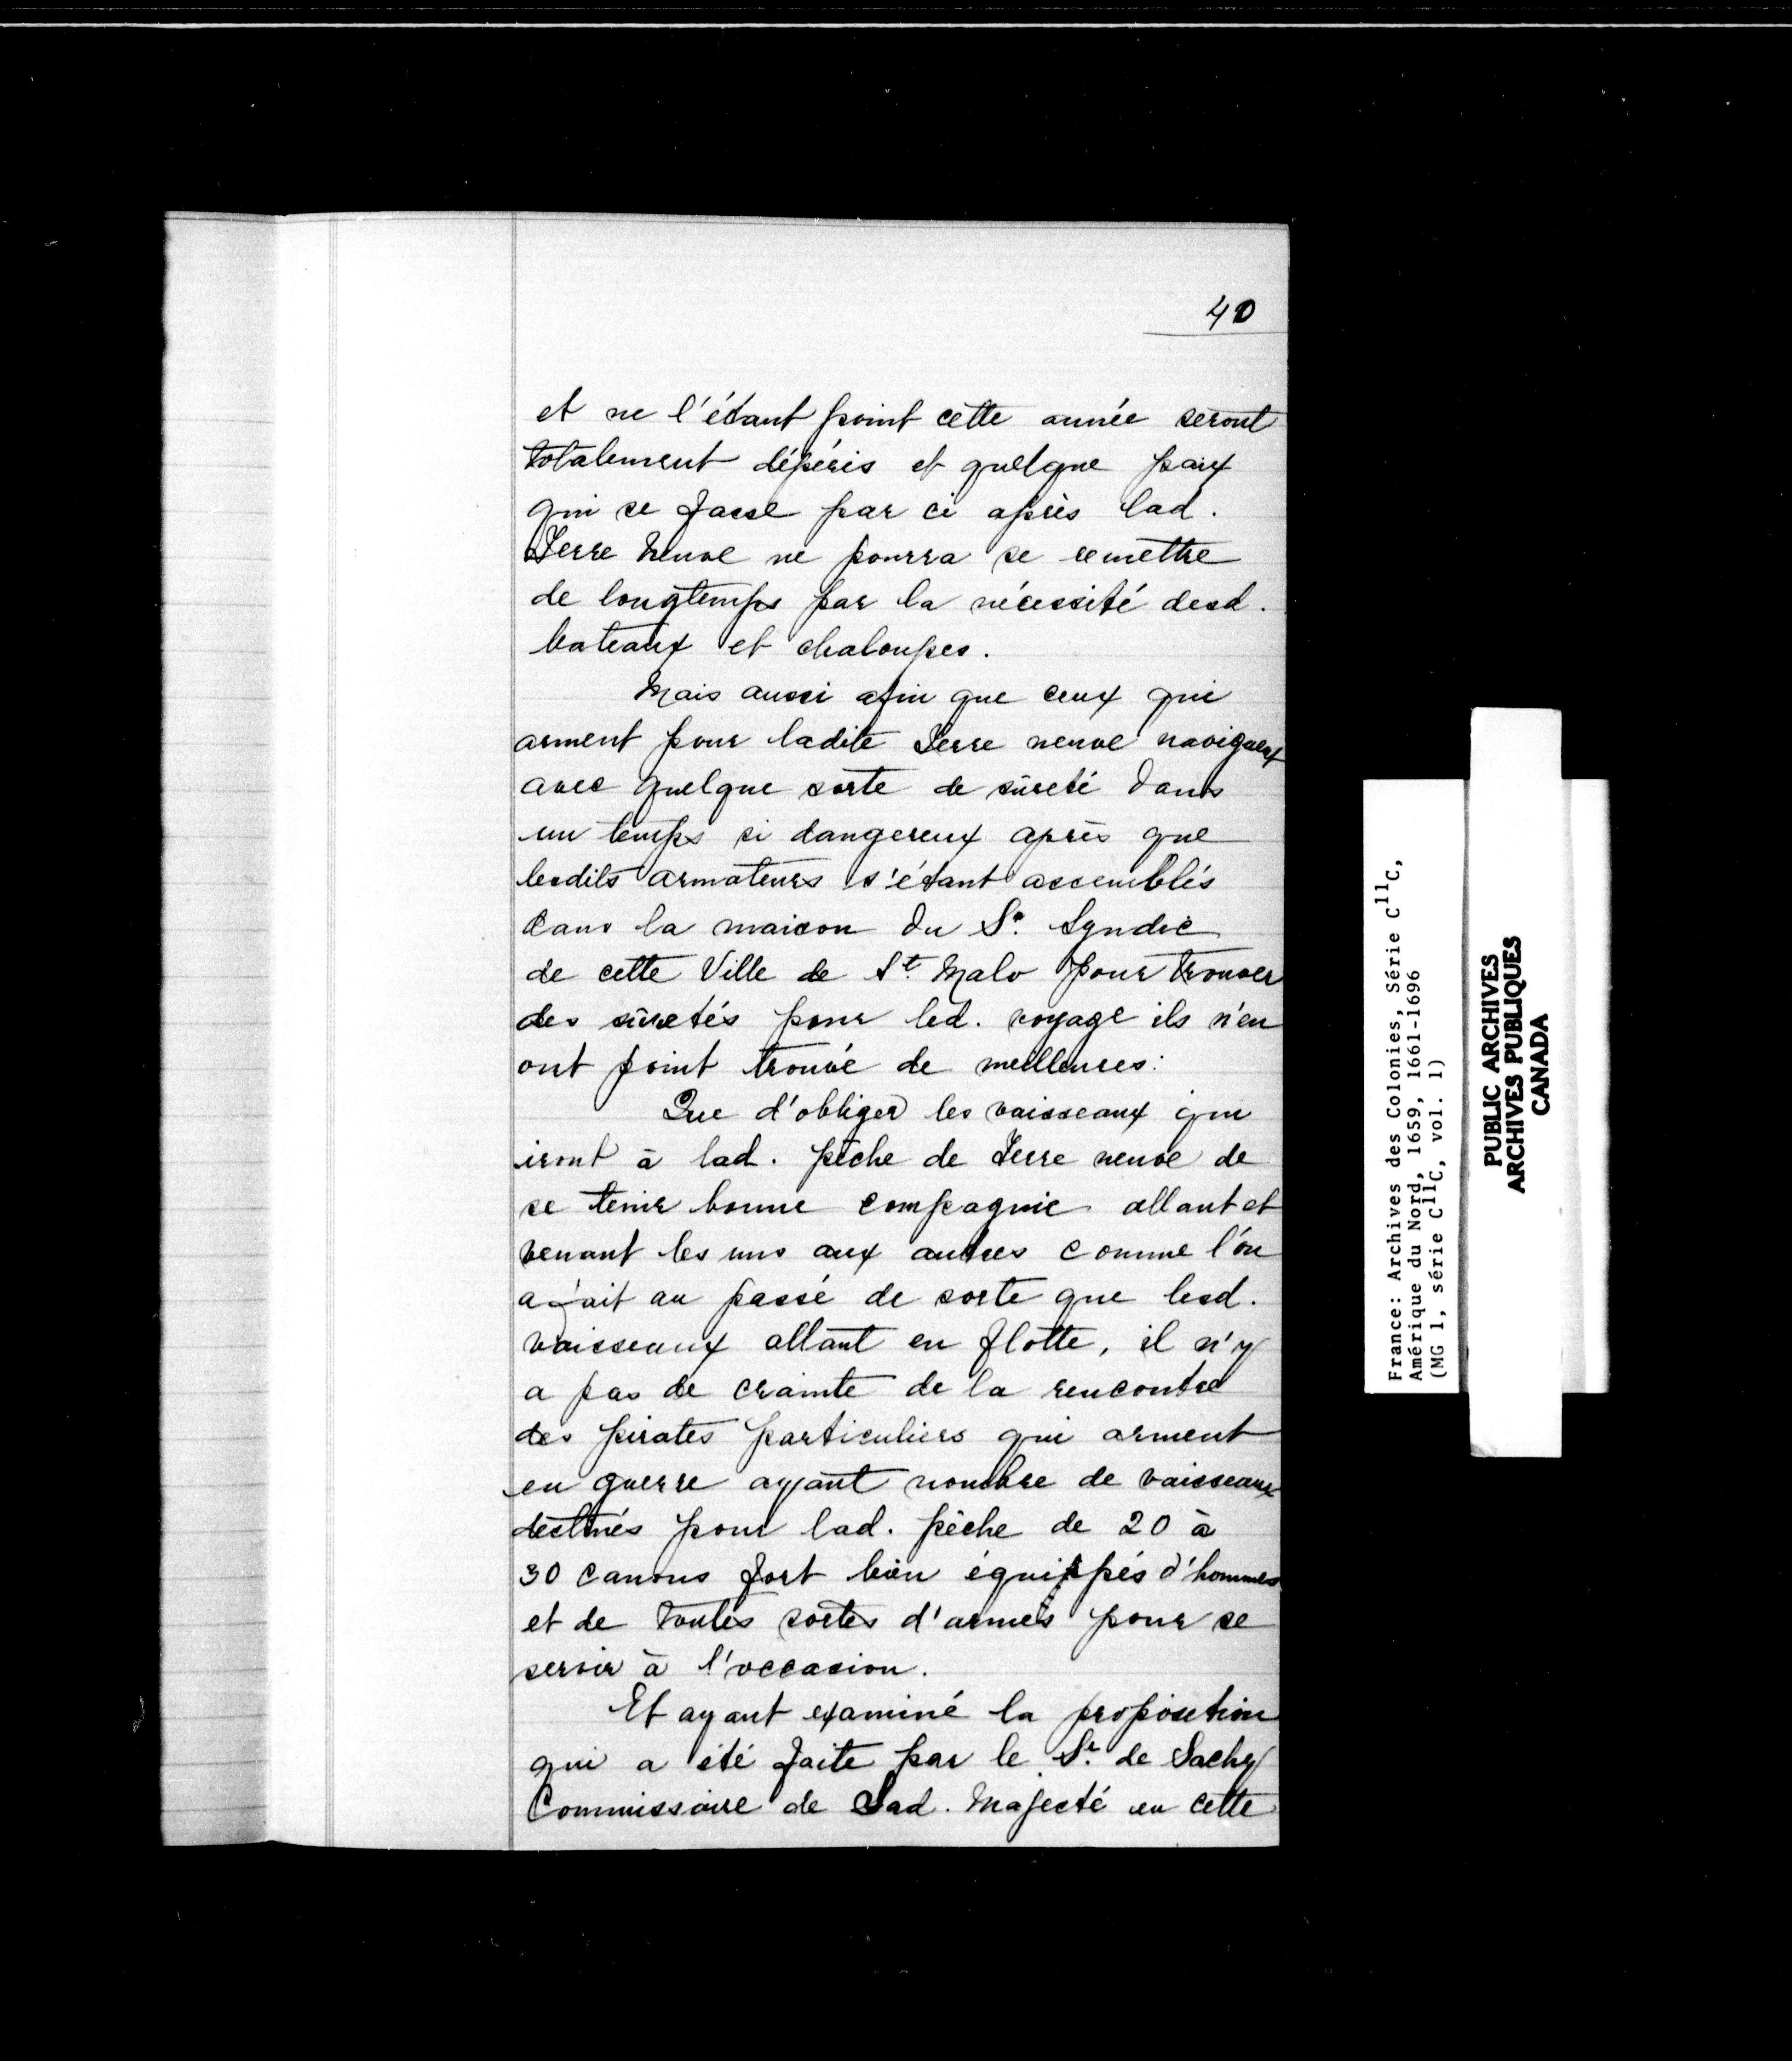 40
et ne l'étant point cette année seront
totalement dépéris et quelque paix
qui se fasse par ci après lad.
Terre Neuve ne pourra se remettre
de longtemps par la nécessité desd.
bateaux et chaloupes.
Mais aussi afin que ceux qui
arment pour ladite Terre neuve naviguent
avec quelque sorte de sûreté dans
un temps si dangereux après que
lesdits armateurs s'étant assemblés
dans la maison du Sr. Syndic
de cette Ville de St. Malo pour trouver
des sûretés pour led. voyage ils n'en
ont point trouvé de meilleures:
Que d'obliger les vaisseaux qui
iront à lad. pêche de Terre neuve de
se tenir bonne compagnie allant et
venant les uns aux autres comme l'on
a fait au passé de sorte que lesd.
vaisseaux allant en flotte, il n'y
a pas de crainte de la rencontre
des pirates particuliers qui arment
en guerre ayant nombre de vaisseaux
destinés pour lad. pêche de 20 à
30 canons fort bien équippés d'hommes
et de toutes sortes d'armes pour se
servir à l'occasion.
Et ayant examiné la proposition
qui a été faite par le Sr. de Sachy
Commissaire de Sad. Majesté en cette
France: Archives des Colonies, Série C11C,
Amérique du Nord, 1659, 1661-1696
(MG 1, série C11C, vol. 1)
PUBLIC ARCHIVES
ARCHIVES PUBLIQUES
CANADA